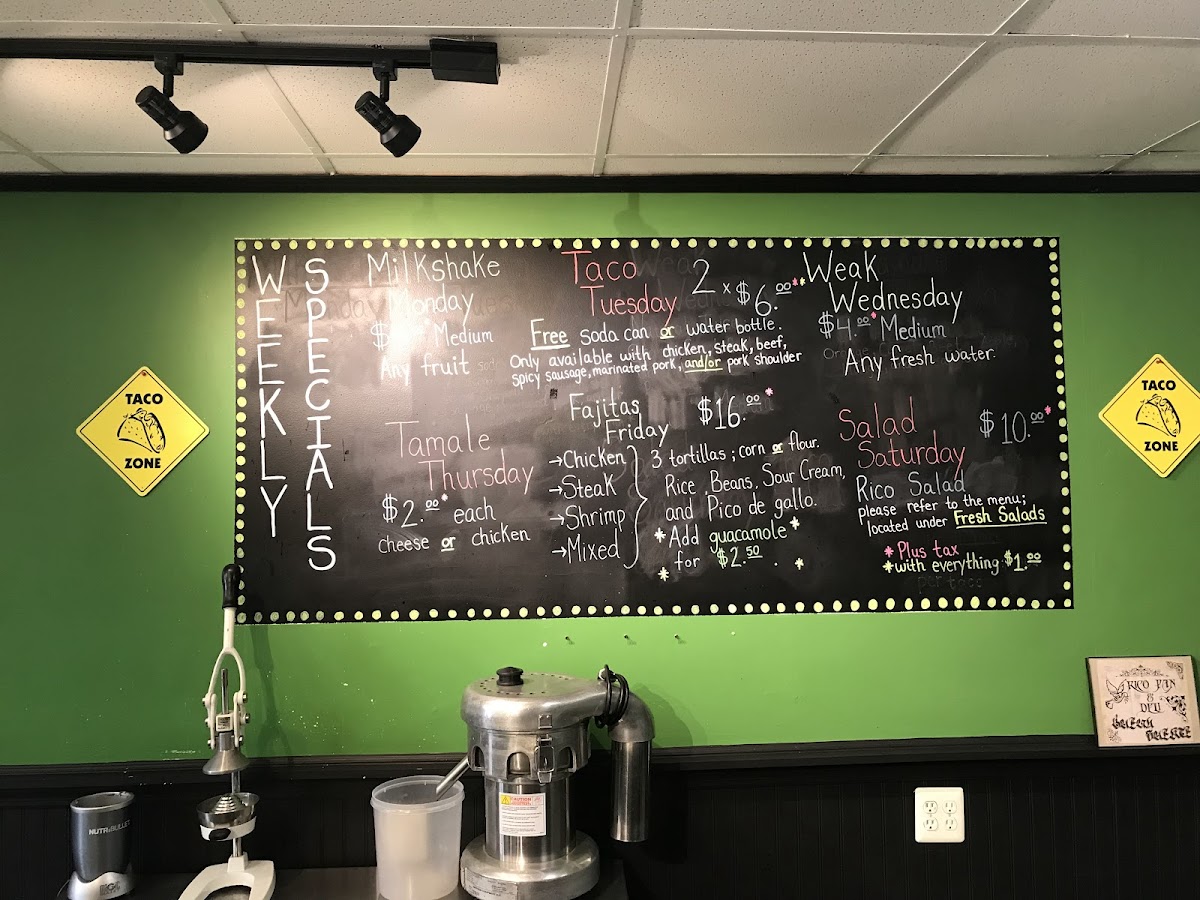 WEEKLY
SPECIALS
Milkshake
Monday
Medium
Any fruit
Taco
Tuesday
2 x $6.00**
Free soda can or water bottle.
Only available with chicken, steak, beef,
spicy sausage, marinated pork, and/or pork shoulder
Weak
Wednesday
$4.00* Medium
Any fresh water.
Tamale
Thursday
$2.00* each
cheese or chicken
Fajitas
Friday
$16.00*
→Chicken
→Steak
→Shrimp
→Mixed
3 tortillas; corn or flour.
Rice, Beans, Sour Cream,
and Pico de gallo.
*Add guacamole*
for $2.50.
Salad
Saturday
$10.00*
Rico Salad
please refer to the menu;
located under Fresh Salads
*Plus tax
*with everything $1.00
per taco
TACO
ZONE
TACO
ZONE
RICO PAN
&
DELI
NUTRiBULLET
CAUTION